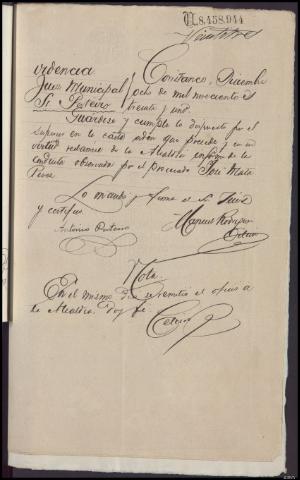 N.8.458.944
Veintitres
Providencia
Juez Municipal
Sr. Pereiro
Constanco, Diciembre
ocho de mil novecientos
treinta y uno.
Guardese y cumpla lo dispuesto por el
superior en la carta orden que precede, y en su
virtud reclamese de la Alcaldia informe de la
conducta observada por el procesado José Mata
Pérez
Lo mandó y firma el Sr. Juez
y certifico
Manuel
Antonio
Nota
En el mismo dia se remitió el oficio a
la Alcaldia. Doy fe.